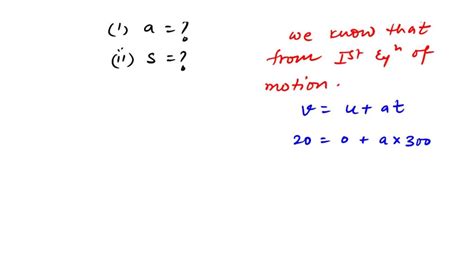 (i) a = ?
(ii) s = ?
we know that
from Ist Eqn of
motion.
v = u + at
20 = 0 + a × 300